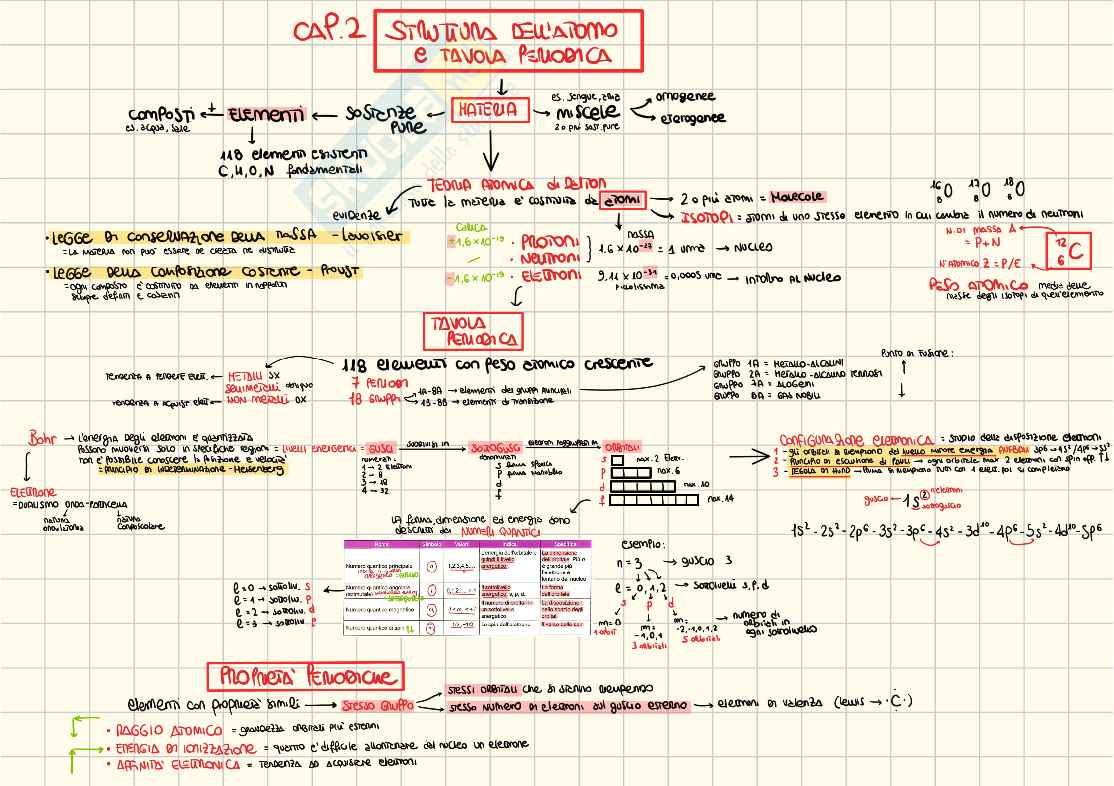 CAP. 2 STRUTTURA DELL'ATOMO
E TAVOLA PERIODICA
COMPOSTI ELEMENTI SOSTANZE
PURE
es. acqua, sale
MATERIA
es. sangue, aria
MISCELE
2 o più sost. pure
omogenee
eterogenee
118 elementi esistenti
C, H, O, N fondamentali
TEORIA ATOMICA di DALTON
TUTTA la MATERIA E' COSTITUITA da ATOMI
evidenze
2 o più atomi = MOLECOLE
ISOTOPI = atomi di uno stesso elemento in cui cambia il numero di neutroni
16 8 O 17 O 18 8 O
• LEGGE DI CONSERVAZIONE DELLA MASSA - LAVOISIER
= LA MATERIA NON PUO' ESSERE NE CREATA NE DISTRUTTA
• LEGGE DELLA COMPOSIZIONE COSTANTE - PROUST
= OGNI COMPOSTO E' COSTITUITO DA ELEMENTI IN RAPPORTI
SEMPRE DEFINITI E COSTANTI
CARICA
+1,6 x 10⁻¹⁹ • PROTONI
• NEUTRONI
-1,6 x 10⁻¹⁹ • ELETTRONI
MASSA
1,6 x 10⁻²⁷ = 1 uma → NUCLEO
9,11 x 10⁻³¹ = 0,0005 uma → INTORNO AL NUCLEO
piccolissima
N. DI MASSA A
= P+N
N° ATOMICO Z = P/E
12 6 C
PESO ATOMICO media delle
masse degli isotopi di quell'elemento
TAVOLA
PERIODICA
118 elementi con peso atomico crescente
7 PERIODI
18 GRUPPI
1A-8A → elementi dei gruppi principali
1B-8B → elementi di transizione
TENDENZA A PERDERE ELET. ← METALLI SX
SEMIMETALLI
TENDENZA A ACQUIST. ELET. ← NON METALLI DX
GRUPPO 1A = METALLO-ALCALINI
GRUPPO 2A = METALLO-ALCALINO TERROSI
GRUPPO 7A = ALOGENI
GRUPPO 8A = GAS NOBILI
PUNTO DI FUSIONE:
Bohr → L'energia degli elettroni è quantizzata
Possono muoversi solo in specifiche regioni = LIVELLI ENERGETICI = GUSCI
non è possibile conoscere la posizione e velocità
= PRINCIPIO DI INDETERMINAZIONE - Heisenberg
ELETTRONE
= DUALISMO ONDA-PARTICELLA
natura
ondulatoria
natura
corpuscolare
numerati:
1 → 2 elettroni
2 → 8
3 → 18
4 → 32
SUDDIVISI IN
SOTTOGUSCI
denominati
s
p
d
f
elettroni raggruppati in
ORBITALI
s max. 2 elett.
p max. 6
d max. 10
f max. 14
CONFIGURAZIONE ELETTRONICA = STUDIO della disposizione elettroni
1 - gli orbitali si riempiono dal livello minore energia AUFBAU
2 - PRINCIPIO DI ESCLUSIONE di PAULI → ogni orbitale max 2 elettroni con spin opp. ↑↓
3 - REGOLA DI HUND → PRIMA si riempiono tutti con 1 elett. poi si completano
guscio ← 1s² → n elettroni
sottoguscio
1s² - 2s² - 2p⁶ - 3s² - 3p⁶ - 4s² - 3d¹⁰ - 4p⁶ - 5s² - 4d¹⁰ - 5p⁶
LA forma, dimensione ed energia sono
descritti dai NUMERI QUANTICI
Nome Simbolo Valori Indica Specifica
Numero quantico principale n 1,2,3,4,5... L'energia dell'orbitale e quindi il livello energetico. La dimensione dell'orbitale. Più n è grande più l'elettrone è lontano dal nucleo
Numero quantico angolare Il sottolivello energetico: s, p, d. La forma dell'orbitale
Numero quantico magnetico Il numero di orbitali in un sottolivello energetico La disposizione nello spazio degli orbitali
Numero quantico di spin
ℓ = 0 → sottoliv. s
ℓ = 1 → sottoliv. p
ℓ = 2 → sottoliv. d
ℓ = 3 → sottoliv. f
esempio:
n = 3 → guscio 3
ℓ = 0, 1, 2 → sottolivelli s, p, d
s p d
m = 0
1 orbit
m =
-1, 0, 1
3 orbitali
m =
-2, -1, 0, 1, 2
5 orbitali
numero di
orbitali in
ogni sottolivello
PROPRIETA' PERIODICHE
elementi con proprietà simili → STESSO GRUPPO
STESSI ORBITALI che si stanno riempendo
STESSO NUMERO DI ELETTRONI sul guscio esterno → elettroni di valenza (Lewis → ·C·)
• RAGGIO ATOMICO = grandezza orbitali più esterni
• ENERGIA DI IONIZZAZIONE = quanto è difficile allontanare dal nucleo un elettrone
• AFFINITA' ELETTRONICA = TENDENZA AD ACQUISIRE elettroni